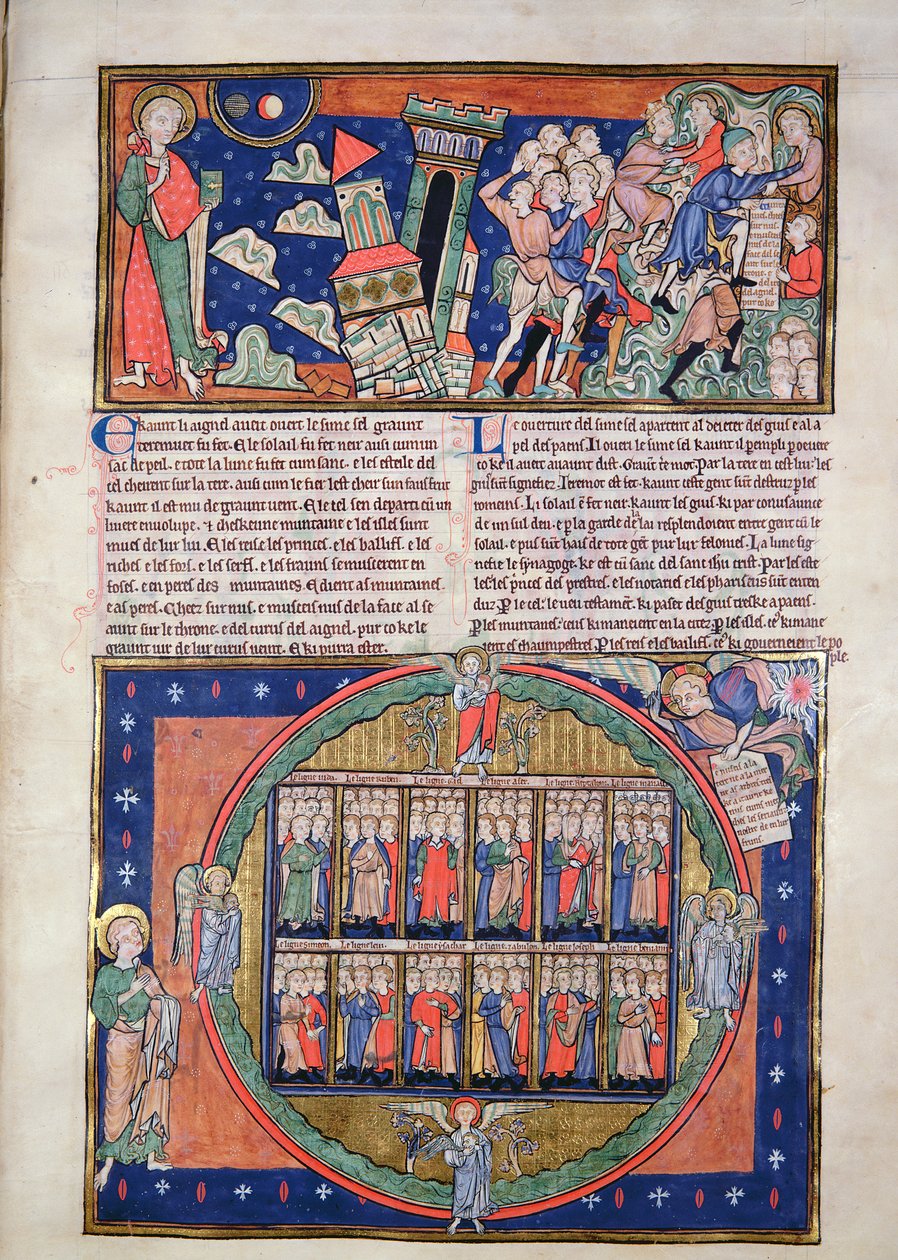 Kaunt li aignel aveit overt le sime sel graunt
teremuet fu fet. E le solail fu fet neir ausi cum un
sac de peil. e tote la lune fu fet cum sanc. e les esteile del
cel cheirent sur la tere. ausi cum le fier lest cheir sun faus frut
kaunt il est mu de graunt vent. E le cel sen departi cum un
livere envolupe. e cheskeune muntaine e les isles sunt
mues de lur liu. E les reis e les princes. e les ballifs. e les
riches e les fors. e les serfs. e les frauns se muscerent en
foses. e en peres des muntaines. E dient as muntaines
e as peres. Cheez sur nus. e muscens nus de la face al se
aunt sur le throne. e del curus del aignel. pur co ke le
graunt iur de lur curus veint. E ki purra ester.
Le overture del sime sel apartent al deieter des gius e al a
pel des paens. Il overi le sime sel kaunt il
co ke il aveit avaunt dist. Par la tere en cest liu les
gius sunt signefiez. Teremot est fet. kaunt ceste gent sunt destruz les
romeins. Li solail est fet neir. kaunt les gius. ki par conusaunce
de un sul deu. e la garde de la lai resplendoient entre gent cum le
solail. e pus sunt hais de tote gent pur lur felonies. La lune sig
nefie le synagoge. ke est cum sanc del sanc ihu crist. Par les este
les les princes des prestres. e les notaries e les phariseus sunt enten
duz. le cel: le veu testament. ki paset des gius treske a paens.
les muntains: ceus ki maneient en la citez. les isles. ceus ki mane
ient es chaumpestres. les reis e les ballifs. ceus ki governeient le po
ple.
sur nus.
e muscens
nus de la
face del se
aunt sur le
trone. e
del aignel.
pur co ke
Le ligne iuda. Le ligne ruben. Le ligne gad. Le ligne aser. Le ligne neptalim. Le ligne manasse
Le ligne simeon. Le ligne levi. Le ligne ysachar Le ligne zabulon. Le ligne ioseph. Le ligne beniamin
e nuisez a la
tere ne a la mer
ne as arbres. ices
ke a taunt ke
nus eums mer
chez les serianz
nostre deu en lur
fruns.